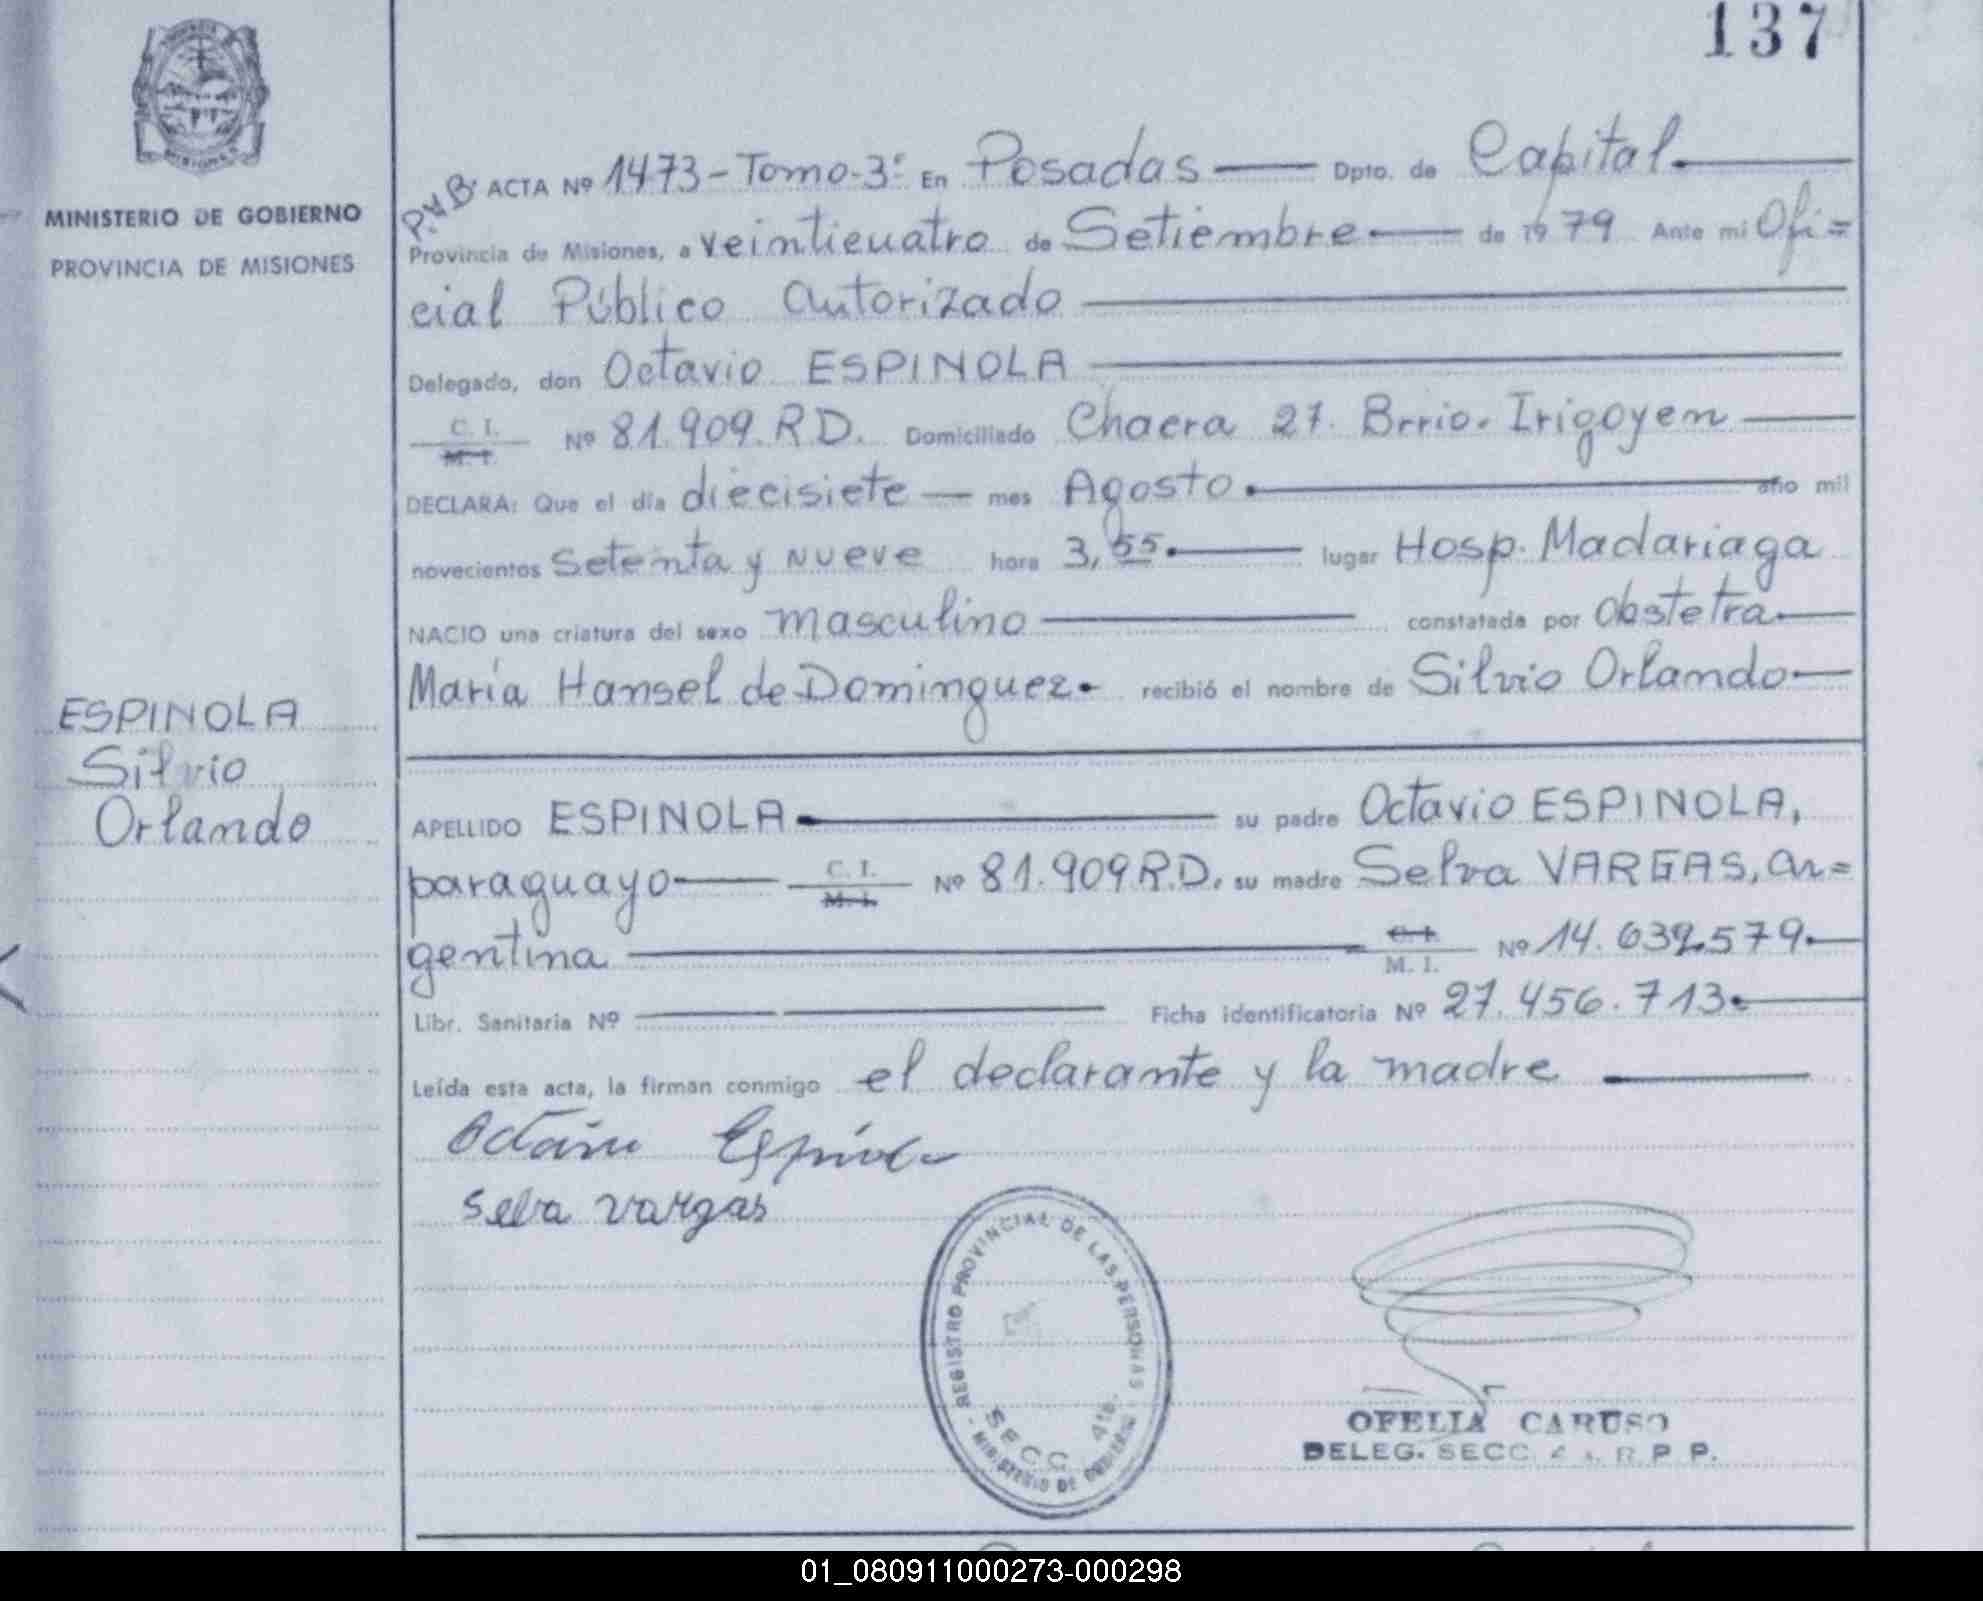 137
MISIONES
MINISTERIO DE GOBIERNO
PROVINCIA DE MISIONES
ESPINOLA
Silvio
Orlando
ACTA Nº 1473-Tomo-3º En Posadas Dpto. de Capital
Provincia de Misiones, a veinticuatro de Setiembre de 1979 Ante mi Ofi=
cial Público autorizado
Delegado, don Octavio ESPINOLA
C. I. M. I. Nº 81.909.R.D. Domiciliado Chacra 27. Brrio. Irigoyen
DECLARA: Que el día diecisiete mes Agosto año mil
novecientos setenta y nueve hora 3,55 lugar Hosp. Madariaga
NACIO una criatura del sexo masculino constatada por obstetra
María Hansel de Dominguez. recibió el nombre de Silvio Orlando
APELLIDO ESPINOLA su padre Octavio ESPINOLA,
paraguayo C. I. M. I. Nº 81.909R.D. su madre Selva VARGAS, ar=
gentina C. I. M. I. Nº 14.639.579.
Libr. Sanitaria Nº Ficha identificatoria Nº 27.456.713.
Leída esta acta, la firman conmigo el declarante y la madre
Octavio Espinola
Selva vargas
REGISTRO PROVINCIAL DE LAS PERSONAS
SECC. 4ta.
MINISTERIO DE GOBIERNO
OFELIA CARUSO
DELEG. SECC. 4 a. R. P. P.
01_080911000273-000298